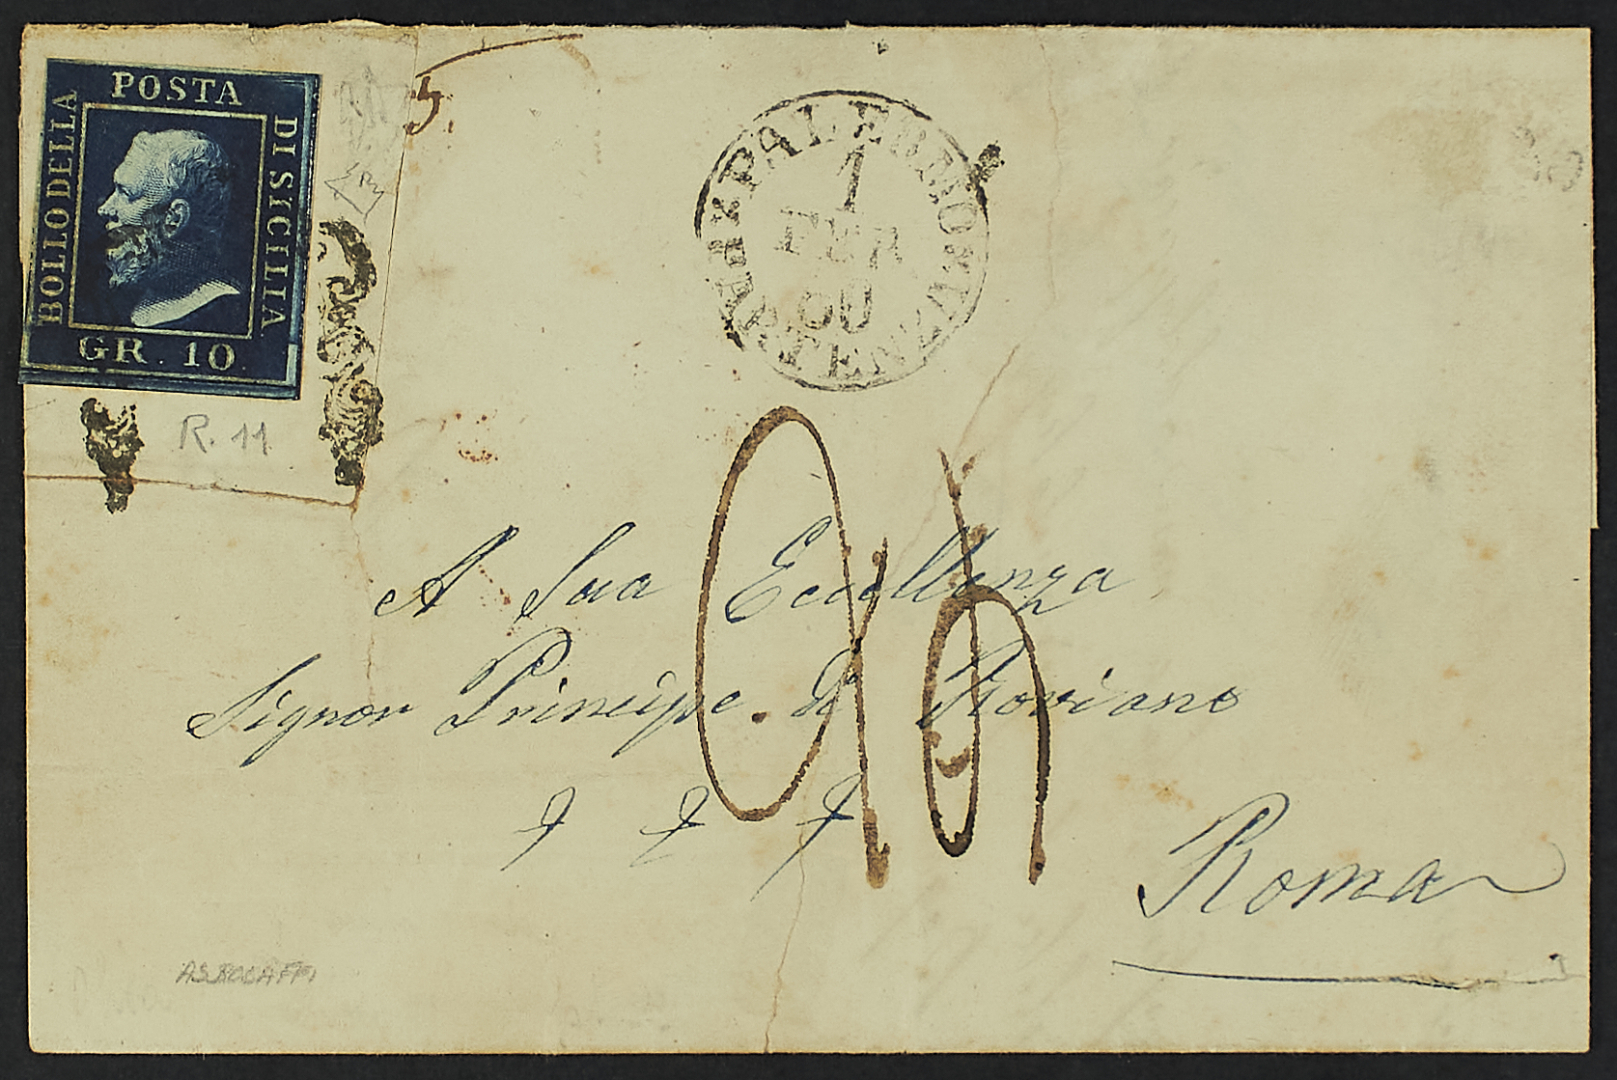 POSTA
BOLLO DELLA
DI SICILIA
GR. 10.
R. 11
PALERMO
1
FEB
60
PARTENZA
A Sua Eccellenza
Signor Principe di Roviano
Roma